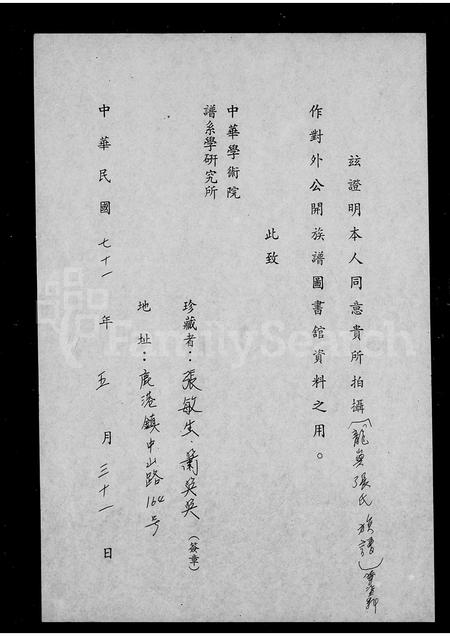 茲證明本人同意貴所拍攝(龍與張氏族譜)
作對外公開族譜圖書館資料之用。
此致
中華學術院
譜系學研究所
珍藏者：張敏生．蕭吳吳(簽章)
地址：鹿港鎮中山路164号
中華民國七十一年五月三十一日
FamilySearch